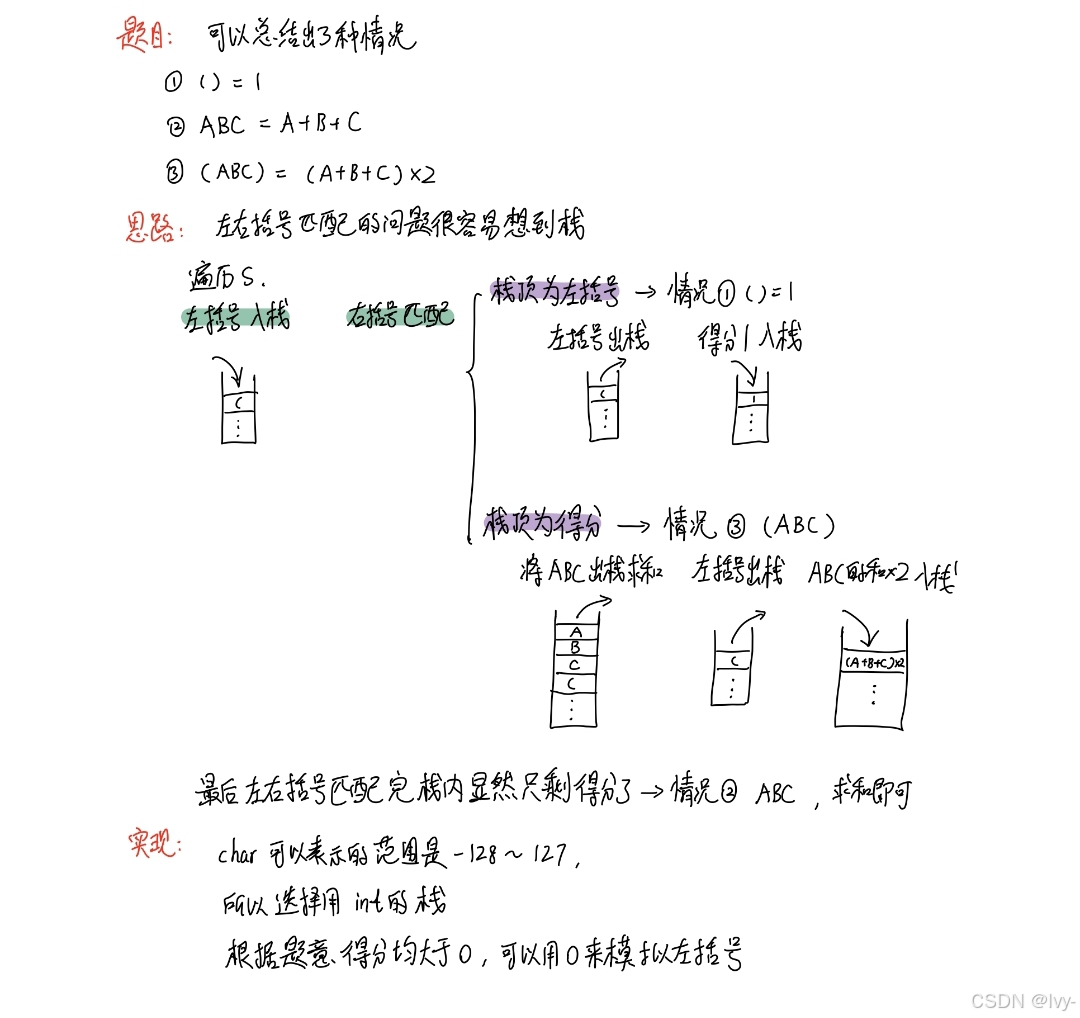 题目： 可以总结出3种情况
① () = 1
② ABC = A+B+C
③ (ABC) = (A+B+C)×2
思路： 左右括号匹配的问题很容易想到栈
遍历S.
左括号入栈 右括号匹配
栈顶为左括号 → 情况① () = 1
左括号出栈 得分1入栈
(
⋮
(
⋮
1
⋮
栈顶为得分 → 情况 ③ (ABC)
将ABC出栈求和 左括号出栈 ABC的和×2入栈
A
B
C
(
⋮
(
⋮
(A+B+C)×2
⋮
最后左右括号匹配完,栈内显然只剩得分了 → 情况② ABC ，求和即可
实现： char 可以表示的范围是 -128 ~ 127，
所以选择用 int的栈
根据题意得分均大于0，可以用0来模拟左括号
CSDN @Ivy-